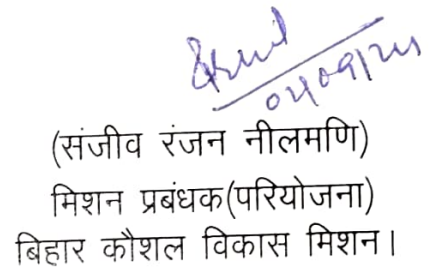 (संजीव रंजन नीलमणि)
मिशन प्रबंधक(परियोजना)
बिहार कौशल विकास मिशन।